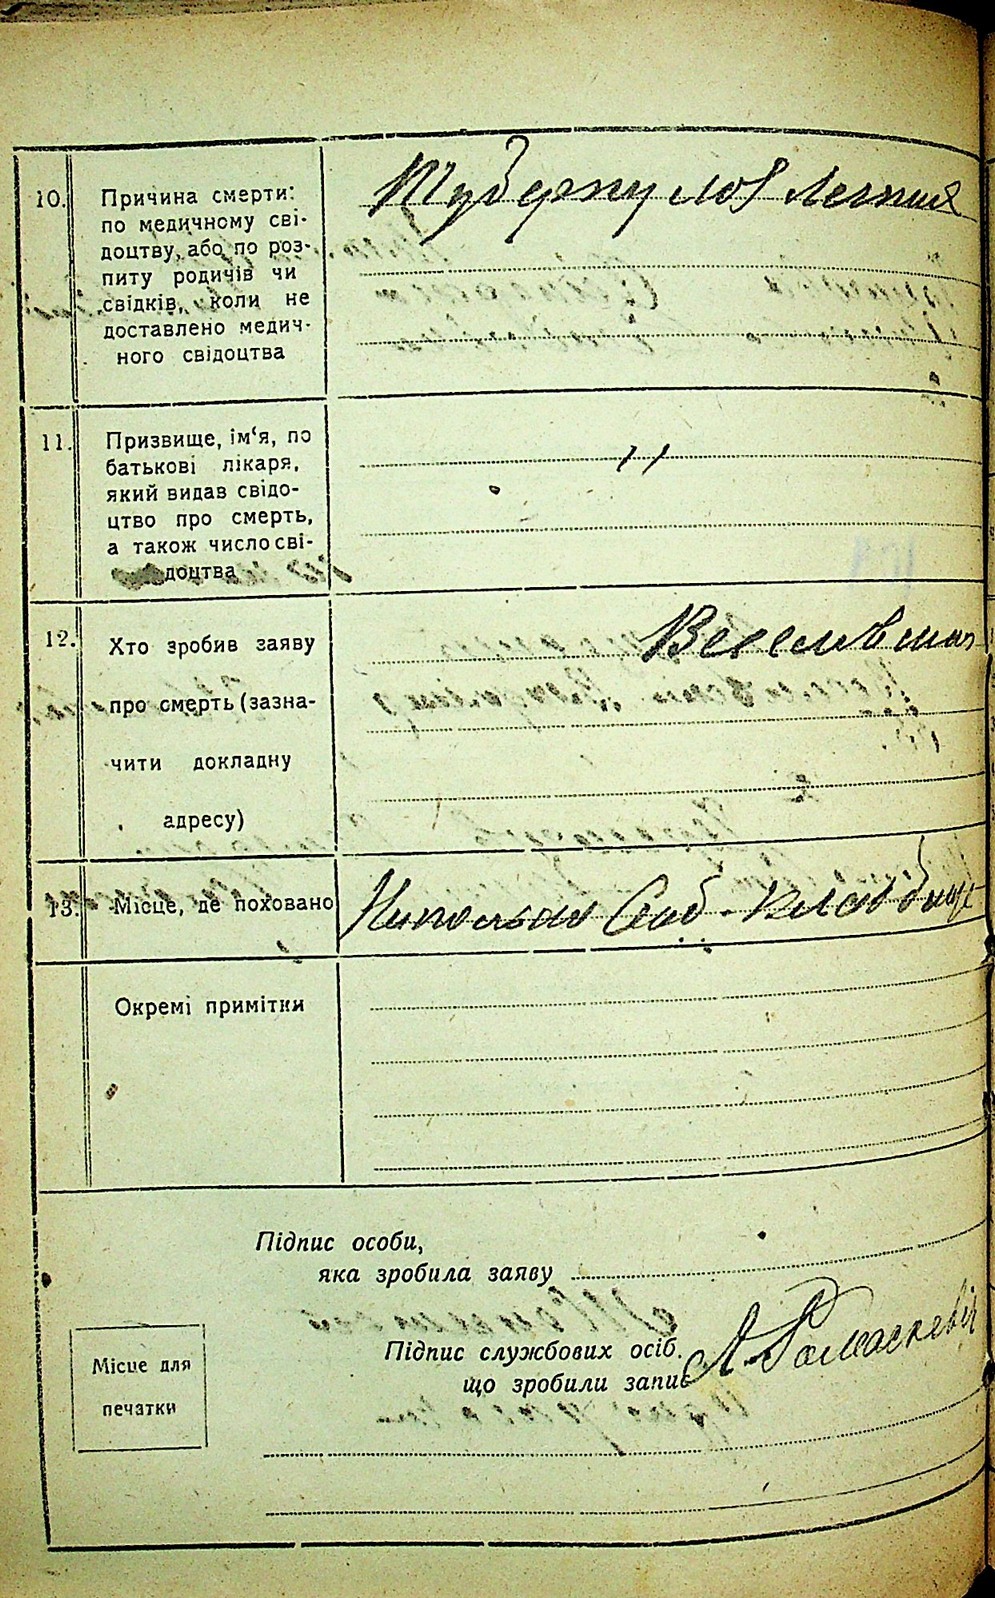 10. Причина смерти:
по медичному сві-
доцтву, або по роз-
питу родичів чи
свідків, коли не
доставлено медич-
ного свідоцтва
Туберкулоз легких
11. Призвище, ім'я, по
батькові лікаря,
який видав свідо-
цтво про смерть,
а також число сві-
доцтва
"
12. Хто зробив заяву
про смерть (зазна-
чити докладну
адресу)
13. Місце, де поховано
кладбище
Окремі примітки
Підпис особи,
яка зробила заяву
Підпис службових осіб,
що зробили запис
А. Ромаскевіч
Місце для
печатки